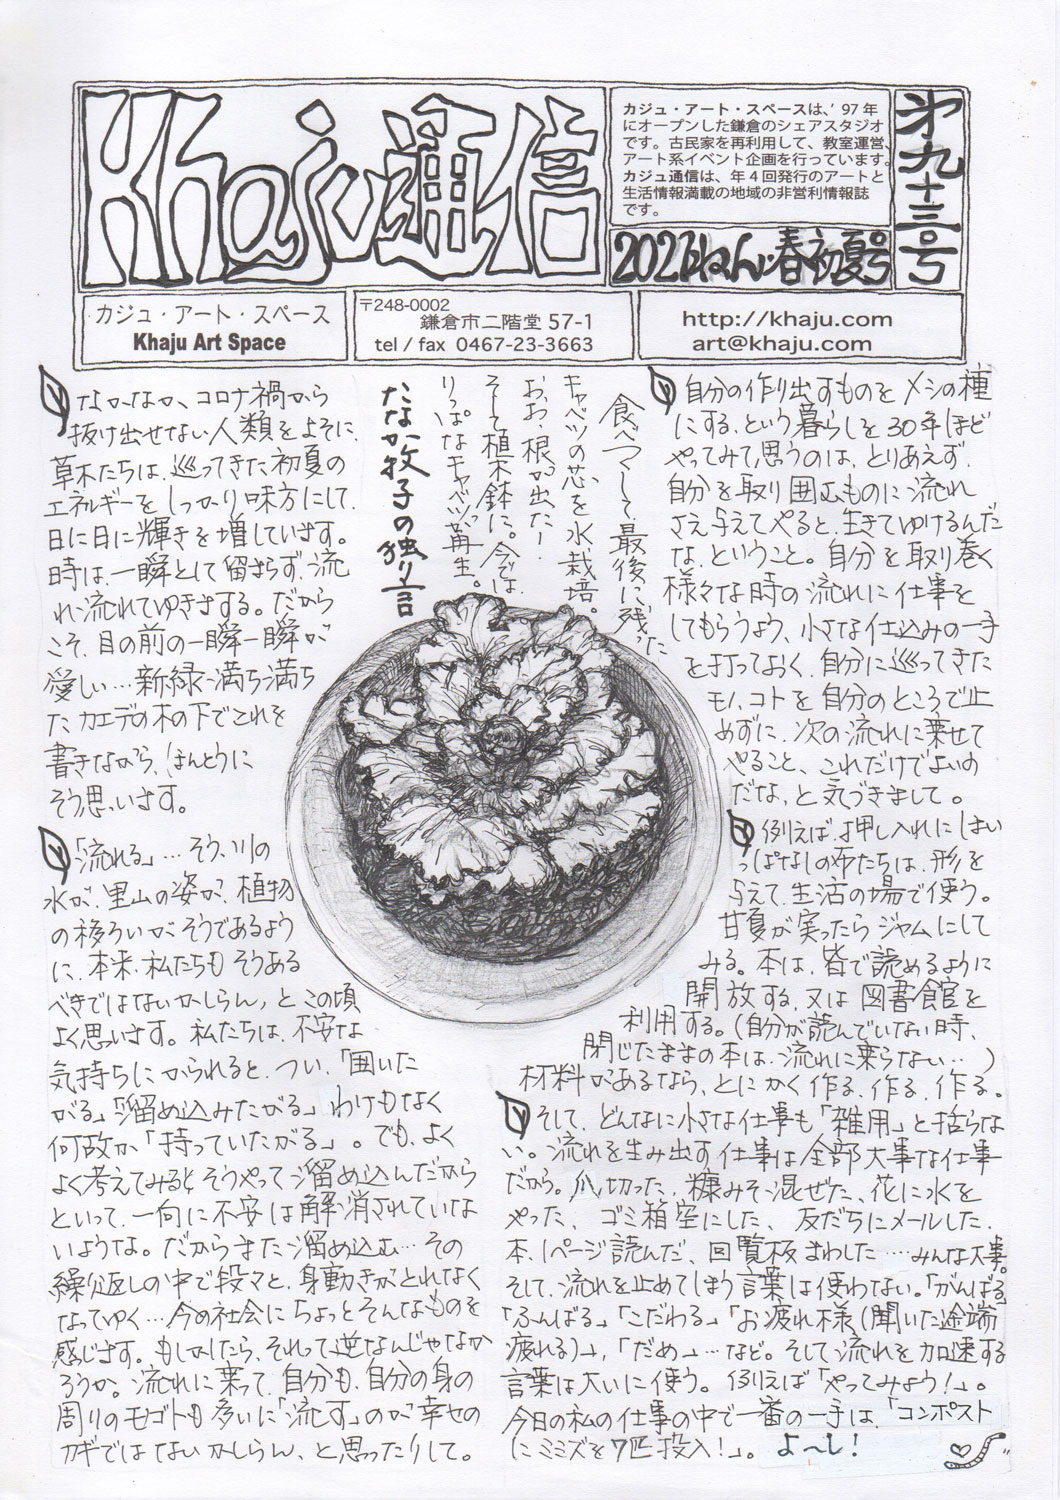 Khaju通信
カジュ・アート・スペースは、'97年
にオープンした鎌倉のシェアスタジオ
です。古民家を再利用して、教室運営、
アート系イベント企画を行っています。
カジュ通信は、年4回発行のアートと
生活情報満載の地域の非営利情報誌
です。
2021ねん・春初夏号
才九十三号
カジュ・アート・スペース
Khaju Art Space
〒248-0002
鎌倉市二階堂 57-1
tel / fax 0467-23-3663
http://khaju.com
art@khaju.com
たなか牧子の独り言
なかなか、コロナ禍から
抜け出せない人類をよそに、
草木たちは、巡ってきた初夏の
エネルギーをしっかり味方にして、
日に日に輝きを増しています。
時は、一瞬として留まらず、流
れ流れてゆきまする。だから
こそ、目の前の一瞬一瞬が
愛しい…新緑に満ち満ち
たカエデの木の下でこれを
書きながら、ほんとうに
そう思います。
「流れる」…そう、川の
水が、里山の姿が、植物
の移ろいがそうであるよう
に、本来、私たちもそうある
べきではないかしらん、とこの頃
よく思います。私たちは、不安な
気持ちにかられると、つい、「囲いた
がる」「溜め込みたがる」わけもなく
何故か「持っていたがる」。でも、よく
よく考えてみると、そうやって溜め込んだから
といって、一向に不安は解消されていな
いような。だからまた溜め込む…その
繰り返しの中で段々と、身動きがとれなく
なってゆく…今の社会にちょっとそんなものを
感じます。もしかしたら、それって逆なんじゃなか
ろうか。流れに乗って、自分も、自分の身の
周りのモノゴトも多いに「流す」のが幸せの
カギではないかしらん、と思ったりして。
食べつくして、最後に残った
キャベツの芯を水栽培。
おお、根が出たー！
そして植木鉢に。今では
りっぱなキャベツが再生。
自分の作り出すものをメシの種
にする、という暮らしを30年ほど
やってみて思うのは、とりあえず、
自分を取り囲むものに流れ
さえ与えてやると、生きてゆけるんだ
な、ということ。自分を取り巻く
様々な時の流れに仕事を
してもらうよう、小さな仕込みの一手
を打っておく。自分に巡ってきた
モノ、コトを自分のところで止
めずに、次の流れに乗せて
やること、これだけでよいの
だな、と気づきまして。
例えば、押し入れにしまい
っぱなしの布たちは、形を
与えて、生活の場で使う。
甘夏が実ったらジャムにして
みる。本は、皆で読めるように
開放する、又は図書館を
利用する。（自分が読んでいない時、
閉じたままの本は、流れに乗らない…）
材料があるなら、とにかく作る、作る、作る。
そして、どんなに小さな仕事も「雑用」と括らな
い。流れを生み出す仕事は全部大事な仕事
だから。爪切った、糠みそ混ぜた、花に水を
やった、ゴミ箱空にした、友だちにメールした、
本、1ページ読んだ、回覧板まわした……みんな大事。
そして、流れを止めてしまう言葉は使わない。「がんばる」
「ふんばる」「こだわる」「お疲れ様（聞いた途端
疲れる）」、「だめ」…など。そして流れを加速する
言葉は大いに使う。例えば「やってみよう！」。
今日の私の仕事の中で一番の一手は、「コンポスト
にミミズを7匹投入！」。よ〜し！